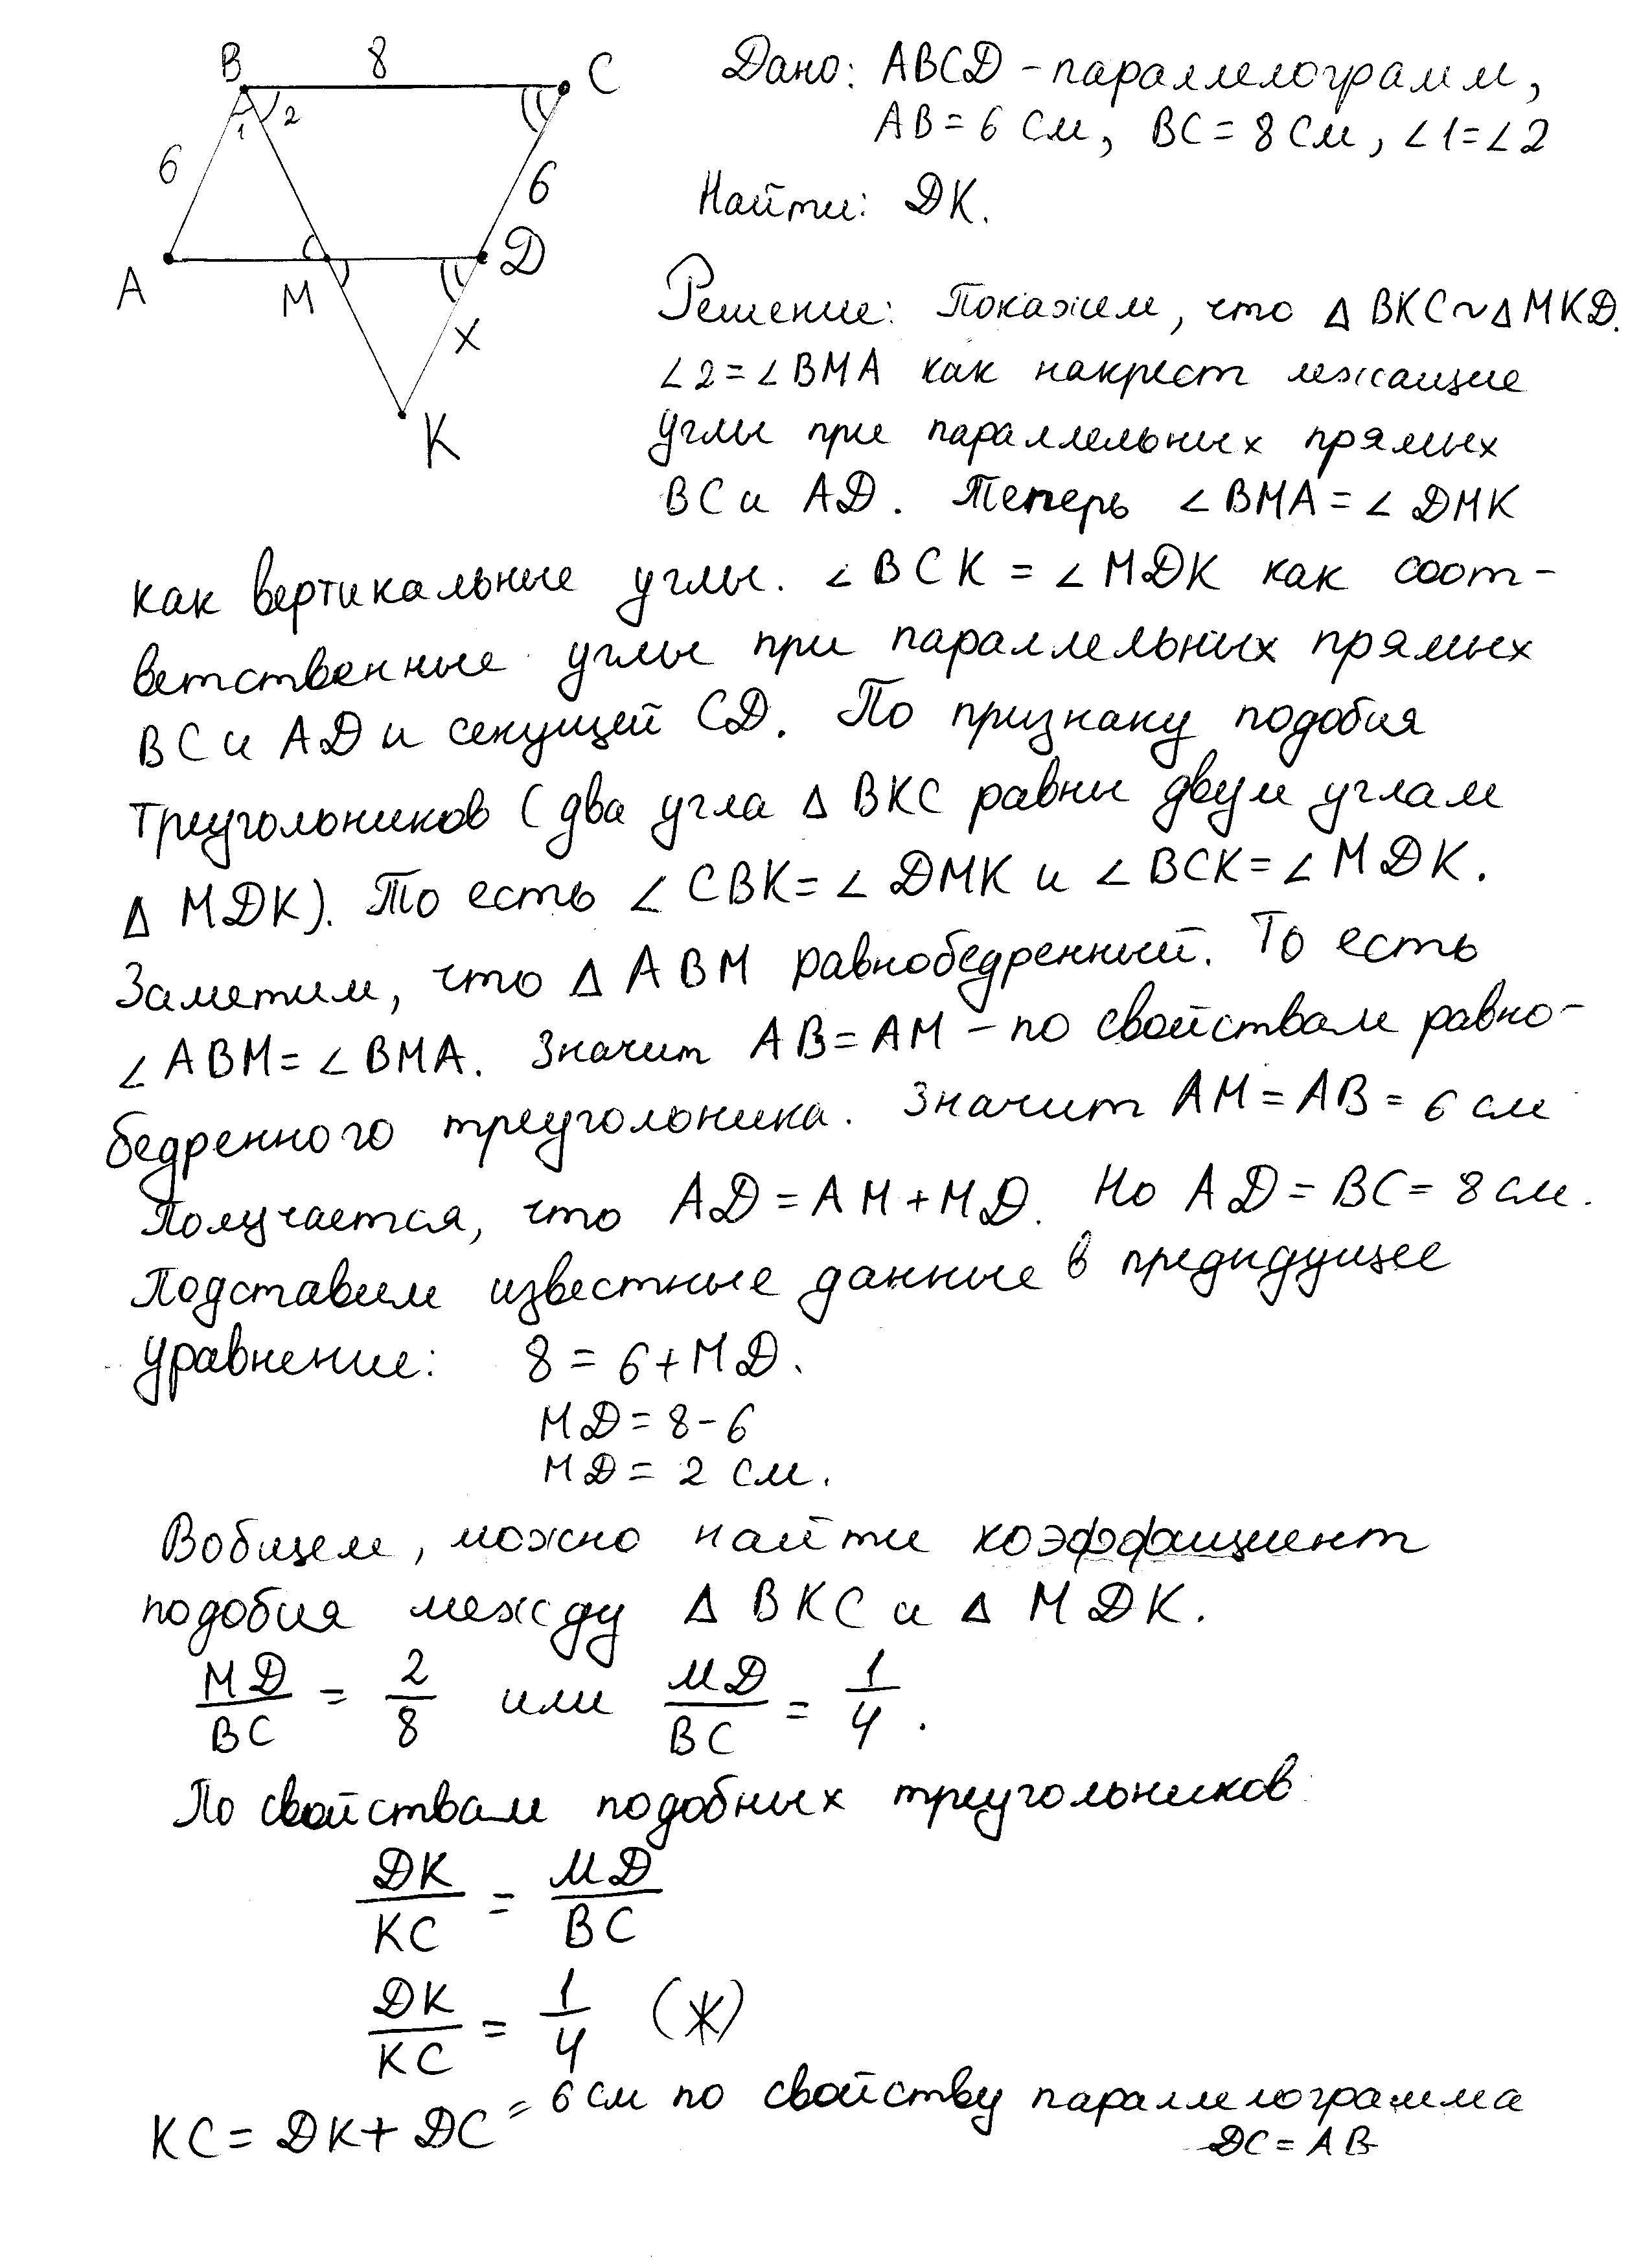 B 8 C
1 2
6 6
A M D
x
K
Дано: ABCD - параллелограмм,
AB = 6 см, BC = 8 см, ∠1=∠2
Найти: DK.
Решение: Покажем, что △ BKC ~ △ MKD.
∠2 = ∠BMA как накрест лежащие
углы при параллельных прямых
BC и AD. Теперь ∠BMA = ∠DMK
как вертикальные углы. ∠BCK = ∠MDK как соот-
ветственные углы при параллельных прямых
BC и AD и секущей CD. По признаку подобия
треугольников (два угла △ BKC равны двум углам
△ MDK). То есть ∠CBK = ∠DMK и ∠BCK = ∠MDK.
Заметим, что △ ABM равнобедренный. То есть
∠ABM = ∠BMA. Значит AB = AM - по свойствам равно-
бедренного треугольника. Значит AM = AB = 6 см
Получается, что AD = AM + MD. Но AD = BC = 8 см.
Подставим известные данные в предидущее
уравнение: 8 = 6 + MD.
MD = 8 - 6
MD = 2 см.
Вобщем, можно найти коэффициент
подобия между △ BKC и △ MDK.
MD/BC = 2/8 или MD/BC = 1/4.
По свойствам подобных треугольников
DK/KC = MD/BC
DK/KC = 1/4 (*)
KC = DK + DC = 6 см по свойству параллелограмма
DC = AB